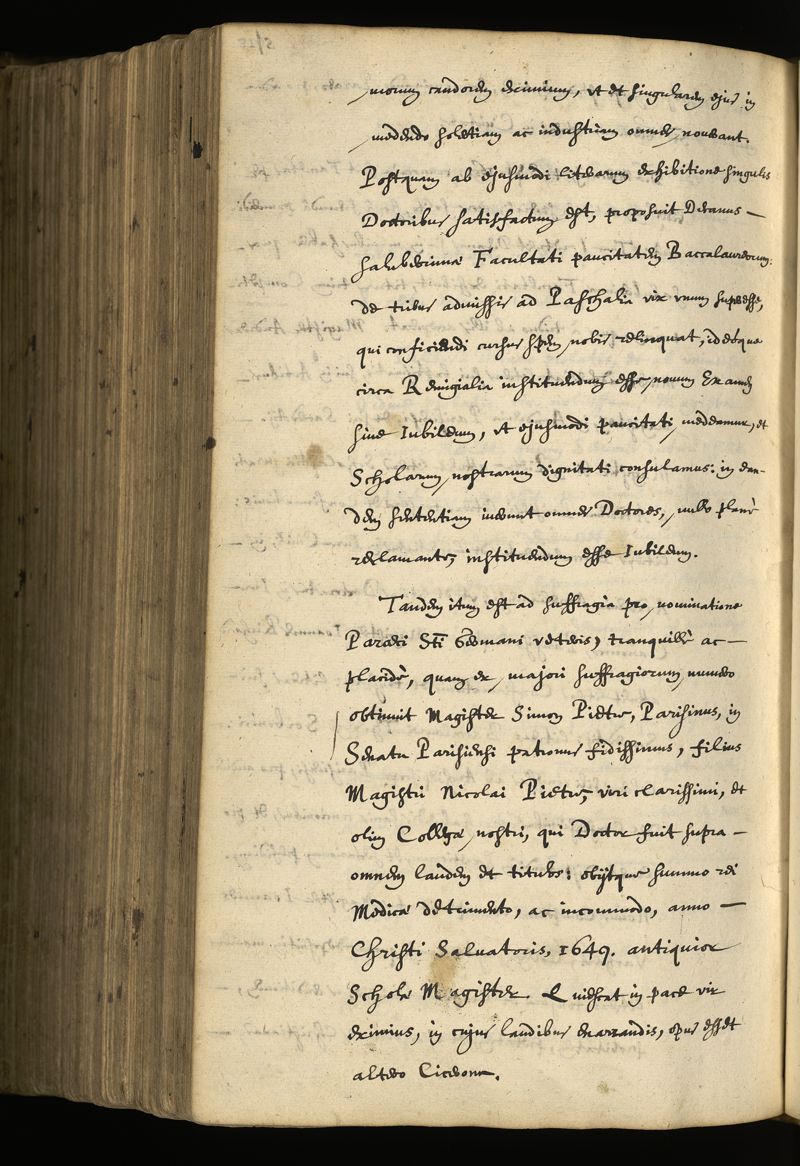 morum candorem eximium, ut et singularem ejus in
medendo soletiam ac industriam omnes noverant.
Postquam ab ejusmodi literarum exhibitione singulis
Doctoribus satisfactum est, proposuit Decanus —
saluberrimæ Facultati paucitatem Baccalaureorum:
de tribus admissis ad Paschalia vix unum superesse,
qui conficiendi cursus spem nobis relinquat, ideoque
circa Remigialia instituendum esse novum Examen
sive Iubileum, ut ejusmodi paucitati medeamur, et
Scholarum nostrarum dignitati consulamus: in ean-
dem sententiam iverunt omnes Doctores, nullo planè
reclamante, instituendum esse Iubileum.
Tandem itum est ad suffragia pro nominatione
Sti Germani veteris, tranquillè ac —
placidè, quam ex majori suffragiorum numero
obtinuit Magister Simon Pietre, Parisinus, in
Senatu Parisiensi patronus fidissimus, filius
Magistri Nicolai Pietre, viri clarissimi, et
olim Collegæ nostri, qui Doctor fuit supra —
omnem laudem et titulos: obijtque summo rei
Medicæ detrimento, ac incommodo, anno —
Christi Salvatoris, 1649. antiquior
Scholæ Magister. Quiescat in pace vir
eximius, in cujus laudibus enarrandis, opus esset
altero Cicerone.